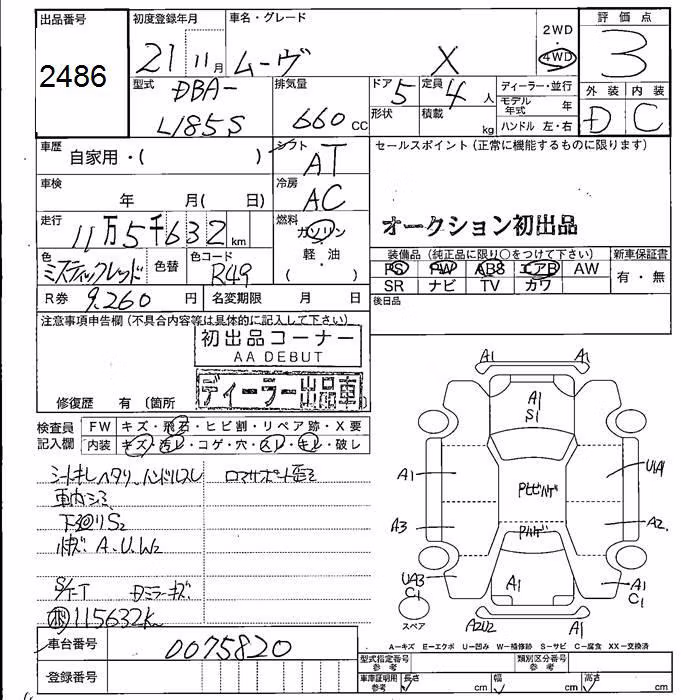 出品番号
2486
初度登録年月
21 11月
車名・グレード
ムーヴ X
2WD
・
4WD
評価点
3
型式
DBA-
L185S
排気量
660 cc
ドア 5
形状
定員 4 人
積載 kg
ディーラー・並行
モデル年式 年
ハンドル 左・右
外装 内装
D C
車歴
自家用・( )
シフト
AT
車検
年 月( 日)
冷房
AC
セールスポイント(正常に機能するものに限ります)
オークション初出品
走行
11万5千632 km
燃料
ガソリン
・
軽・油
( )
色
ミスティックレッド
色替
色コード
R49
R券 9,260 円
名変期限 月 日
装備品(純正品に限り○をつけて下さい)
新車保証書
PS PW ABS エアB AW
SR ナビ TV カワ
有・無
後日品
注意事項申告欄(不具合内容等は具体的に記入して下さい)
初出品コーナー
AA DEBUT
ディーラー出品車
修復歴 有 (箇所 )
検査員
記入欄
FW キズ・飛石・ヒビ割・リペア跡・X要
内装 キズ・汚レ・コゲ・穴・スレ・キレ・破レ
シートキレ ヘタリ、ハンドルスレ
車内シミ
下廻りS2
A.U.W2
Dミラーキズ
115632K
車台番号
0075820
登録番号
A1 A1
A1
S1
A1
U1A1
A3
A2
UA3
C1
A1
A1
C1
スペア
A2U2
A1
A=キズ E=エクボ U=凹み W=補修跡 S=サビ C=腐食 XX=交換済
型式指定番号
参考
類別区分番号
参考
車庫証明用
参考
長さ cm
幅 cm
高さ cm